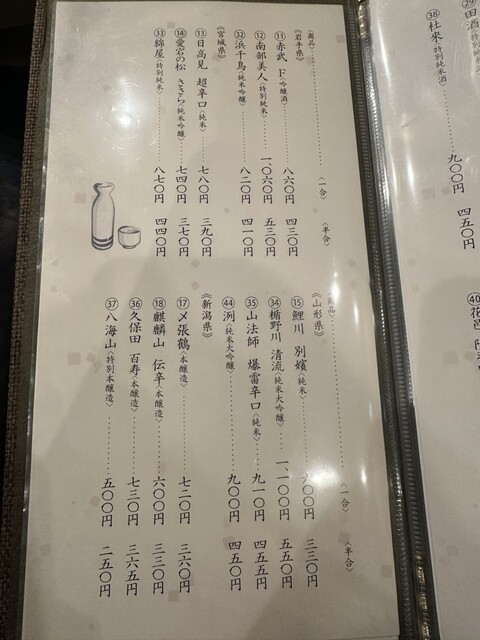 《商品》 〈一合〉 〈半合〉
《岩手県》
⑪ 赤武 F〈吟醸酒〉 八六〇円 四三〇円
⑫ 南部美人〈特別純米〉 一、〇六〇円 五三〇円
㉜ 浜千鳥〈純米吟醸〉 八二〇円 四一〇円
《宮城県》
⑬ 日高見 超辛口〈純米〉 七八〇円 三九〇円
⑭ 愛宕の松 ささら〈純米吟醸〉 七四〇円 三七〇円
㉝ 綿屋〈特別純米〉 八七〇円 四四〇円
《商品》 〈一合〉 〈半合〉
《山形県》
⑮ 鯉川 別嬪〈純米〉 六〇〇円 三三〇円
㉞ 楯野川 清流〈純米大吟醸〉 一、一〇〇円 五五〇円
㉟ 山法師 爆雷辛口〈純米〉 九一〇円 四五五円
㊹ 洌〈純米大吟醸〉 九〇〇円 四五〇円
《新潟県》
⑰ 〆張鶴〈本醸造〉 七二〇円 三六〇円
⑱ 麒麟山 伝辛〈本醸造〉 六〇〇円 三三〇円
㊱ 久保田 百寿〈本醸造〉 七三〇円 三六五円
㊲ 八海山〈特別本醸造〉 五〇〇円 二五〇円
㉙ 田酒〈特別純米
㊳ 杜來〈特別純米酒〉 九〇〇円 四五〇円
㊵ 花邑